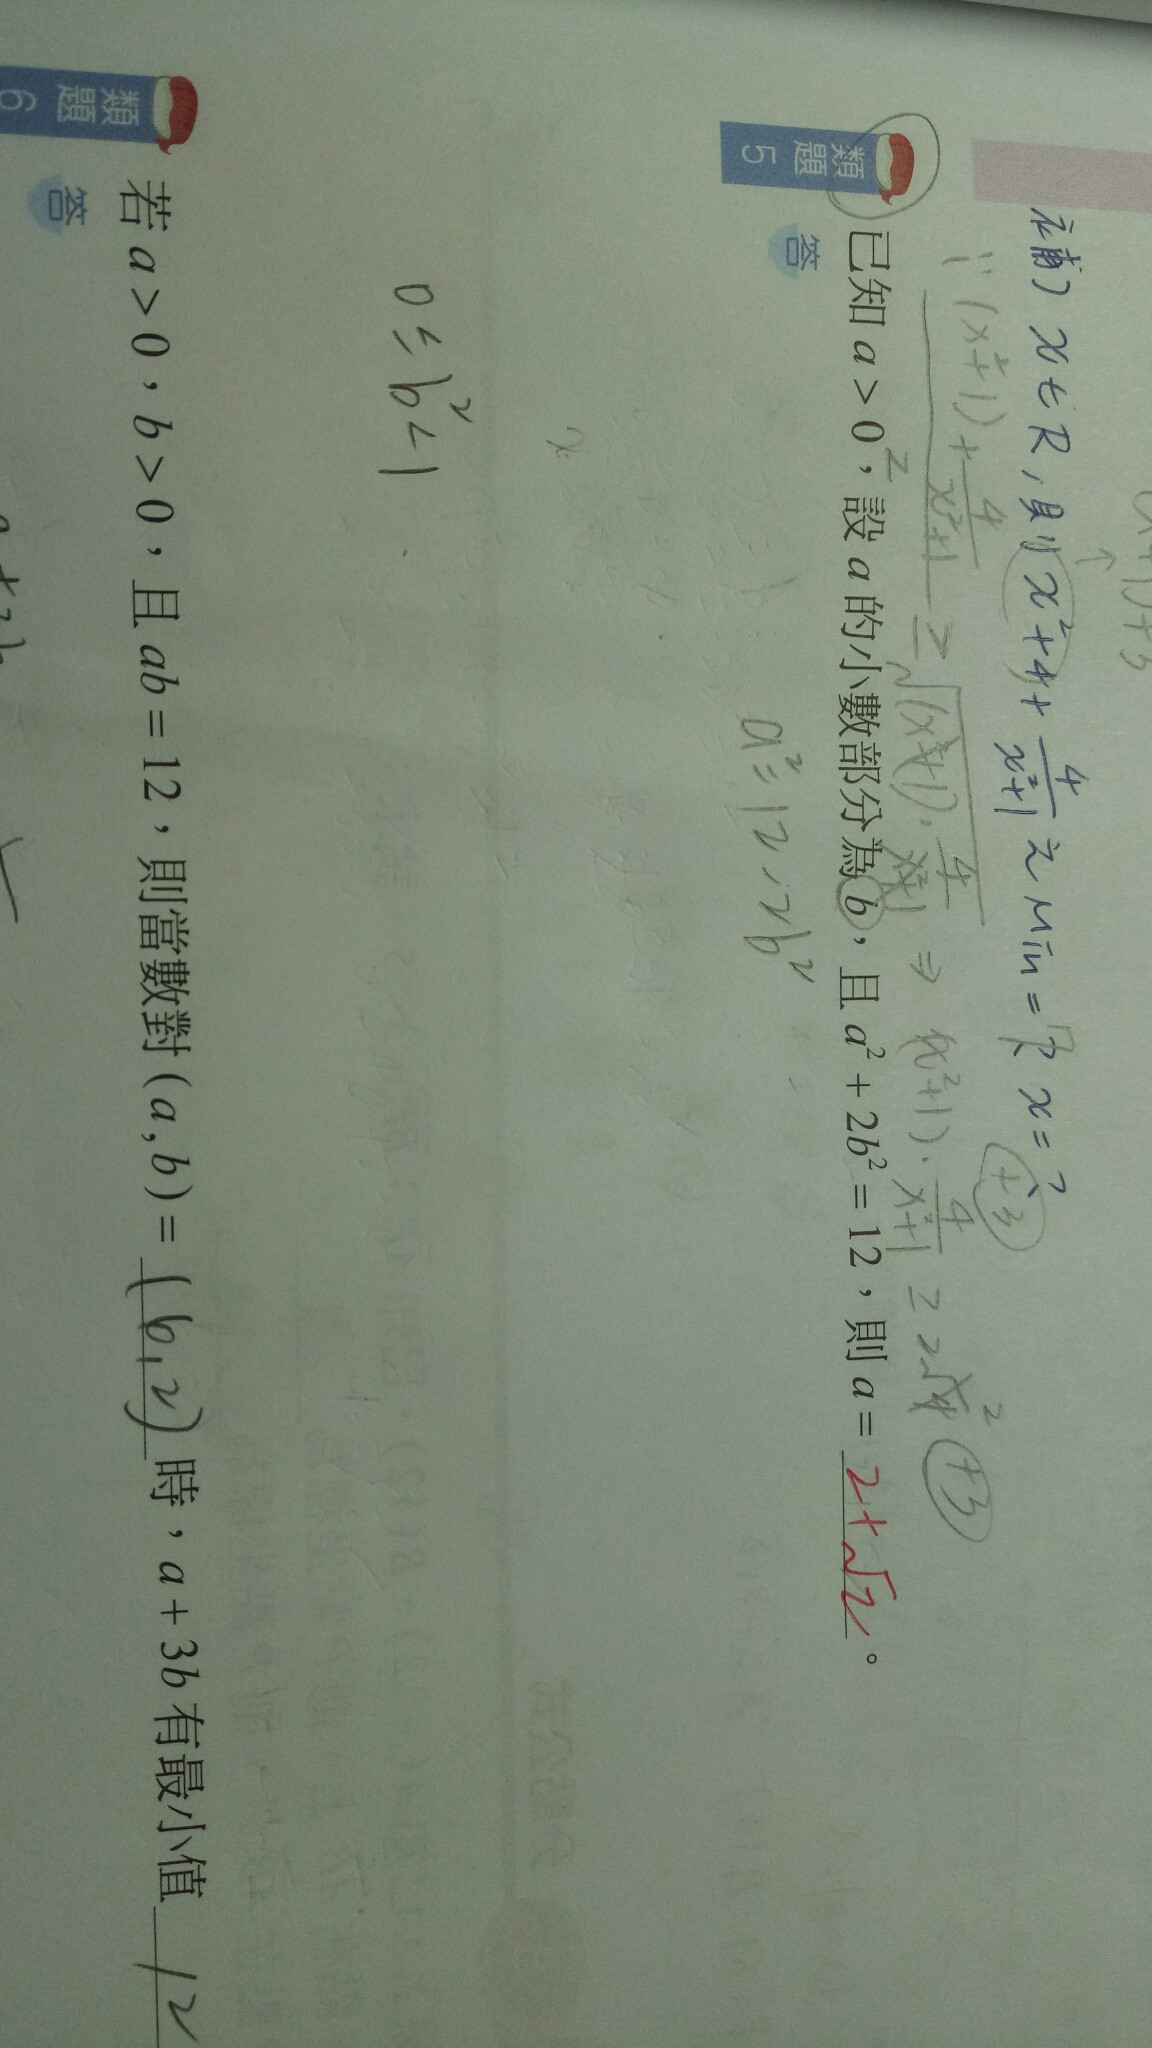 補) x∈R, 則 x²+4+4/(x²+1) 之 Min=? x=?
(x²+1)+4/(x²+1) ≥ √((x²+1)·4/(x²+1)) ⇒ (x²+1)·4/(x²+1) ≥ 2√4 +3
+3
類題 5 已知 a > 0,設 a 的小數部分為 b,且 a² + 2b² = 12,則 a = 2+√2 。
答
a² = 12 - 2b²
0 ≤ b² < 1
類題 6 若 a > 0,b > 0,且 ab = 12,則當數對 (a, b) = (6, 2) 時,a + 3b 有最小值 12
答